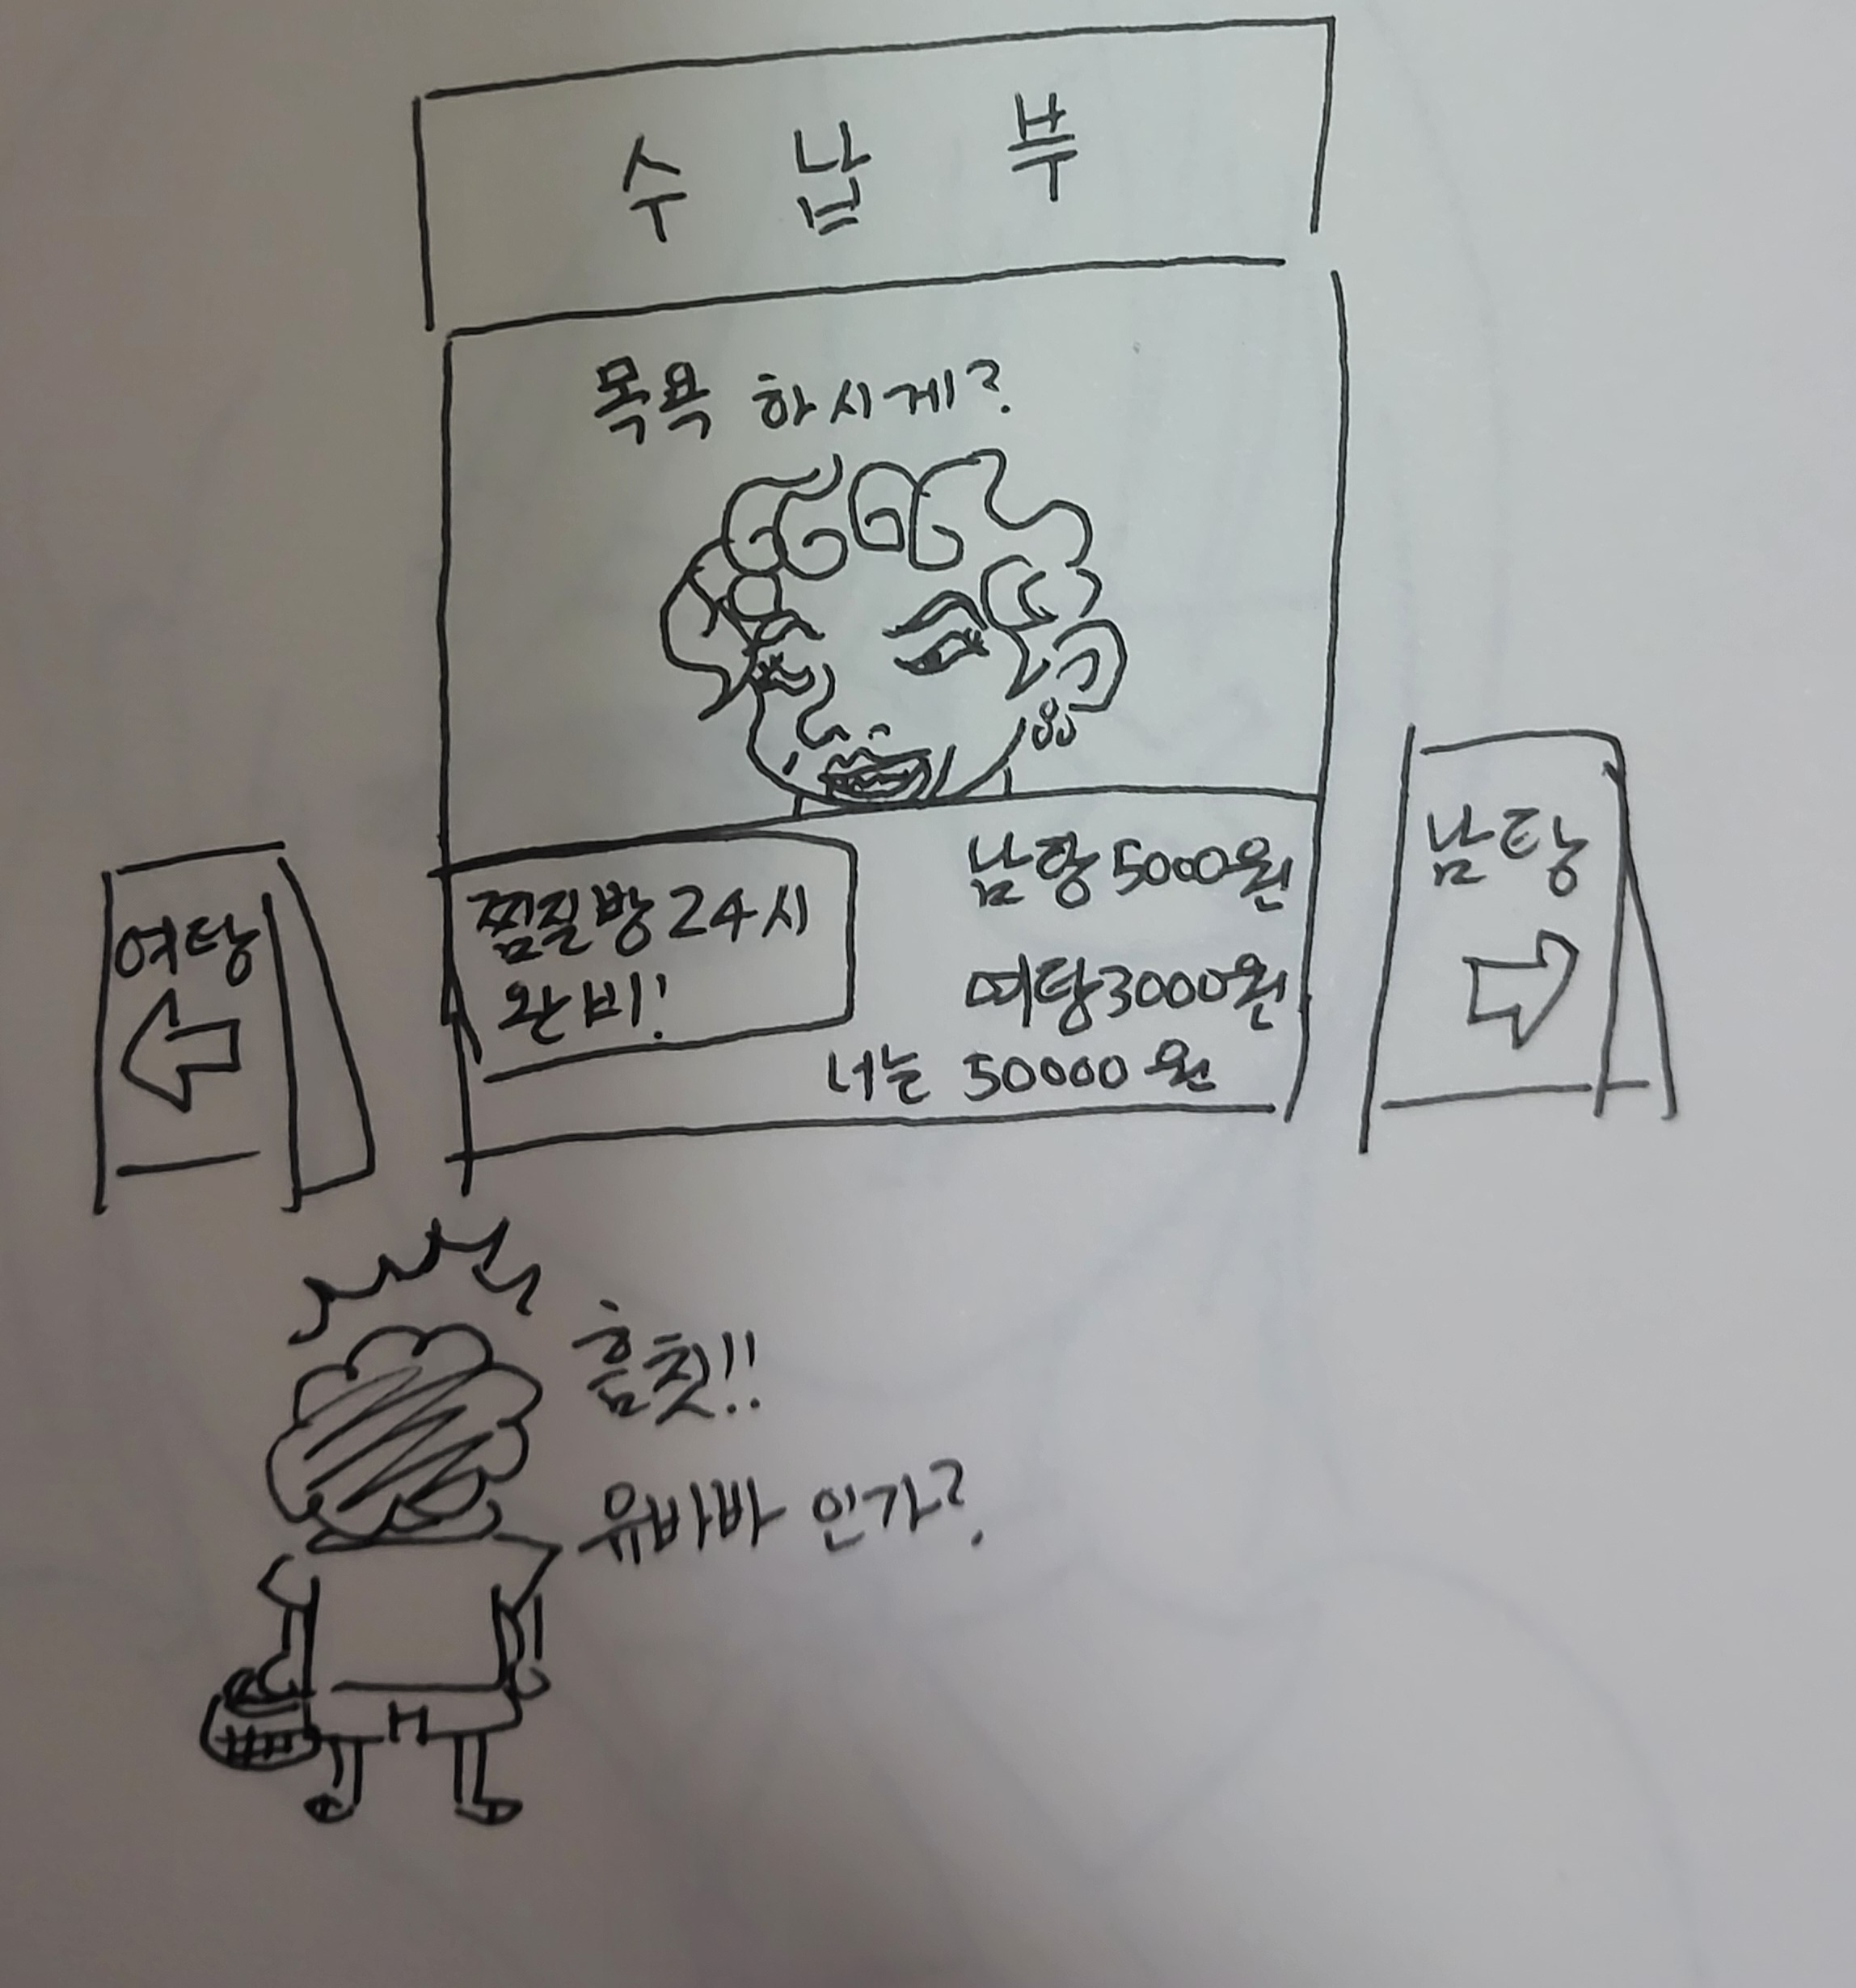 수 납 부
목욕 하시게?
찜질방 24시
완비!
남탕 5000원
여탕 3000원
너는 50000원
여탕
남탕
흠칫!!
유바바 인가?
H